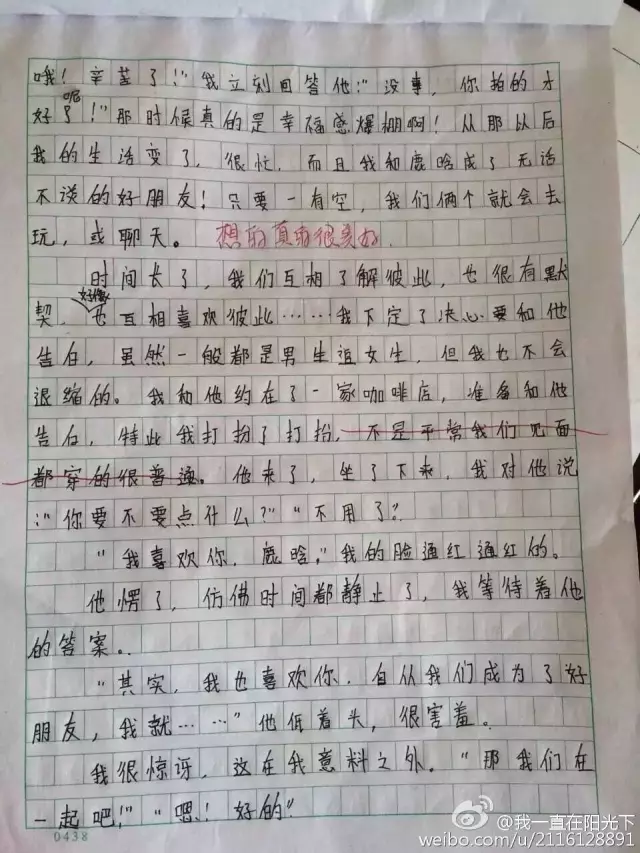 哦！辛苦了！"我立刻回答他："没事，你拍的才
好呢！"那时候真的是幸福感爆棚啊！从那以后
我的生活变了，很忙，而且我和鹿晗成了无话
不说的好朋友！只要一有空，我们俩个就会去
玩，或聊天。 想的真的很美好
时间长了，我们互相了解彼此，也很有默
契，好像也互相喜欢彼此……我下定了决心要和他
告白，虽然一般都是男生追女生，但我也不会
退缩的。我和他约在了一家咖啡店，准备和他
告白，特此我打扮了打扮，不是平常我们见面
都穿的很普通。他来了，坐了下来，我对他说
："你要不要点什么？""不用了？
"我喜欢你，鹿晗，"我的脸通红通红的。
他愣了，仿佛时间都静止了，我等待着他
的答案。.
"其实，我也喜欢你，自从我们成为了好
朋友，我就……"他低着头，很害羞。
我很惊讶，这在我意料之外。"那我们在
一起吧！""嗯！好的"
0438
@我一直在阳光下
weibo.com/u/2116128891